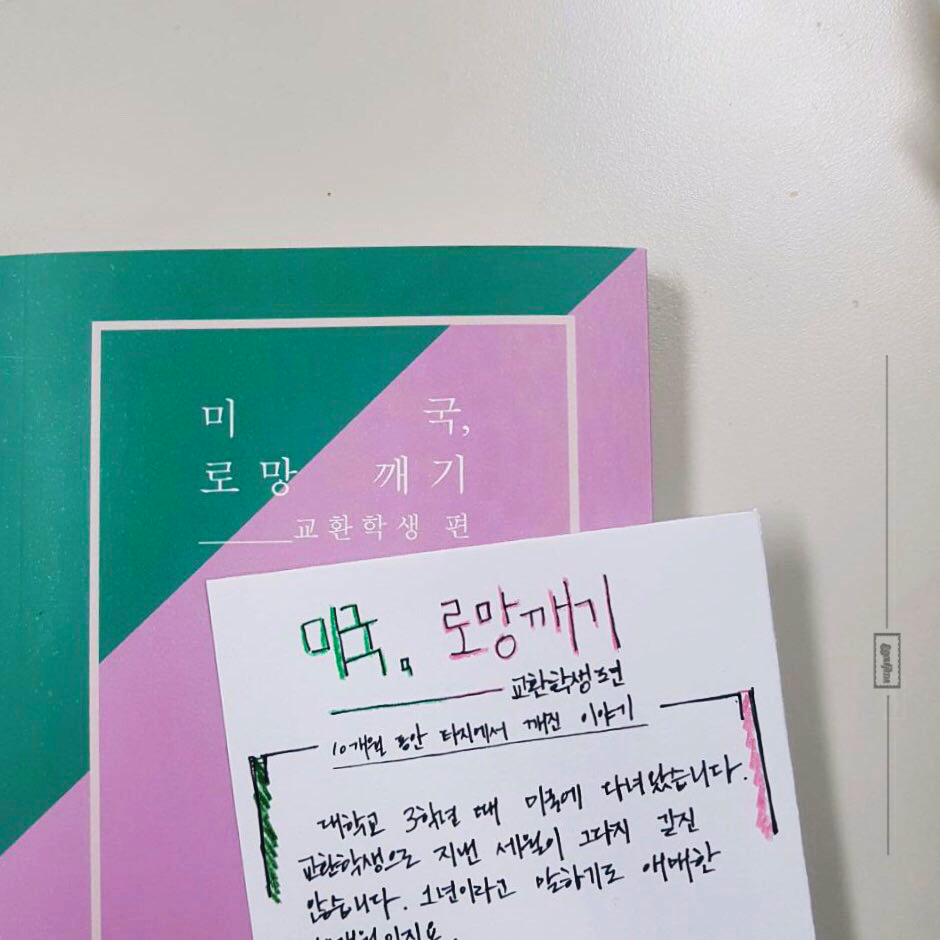 미 국,
로망 깨기
교환학생 편
미국, 로망깨기
교환학생 편
10개월 동안 타지에서 깨진 이야기
대학교 3학년 때 미국에 다녀왔습니다.
교환학생으로 지낸 세월이 그다지 길진
않습니다. 1년이라고 말하기도 애매한